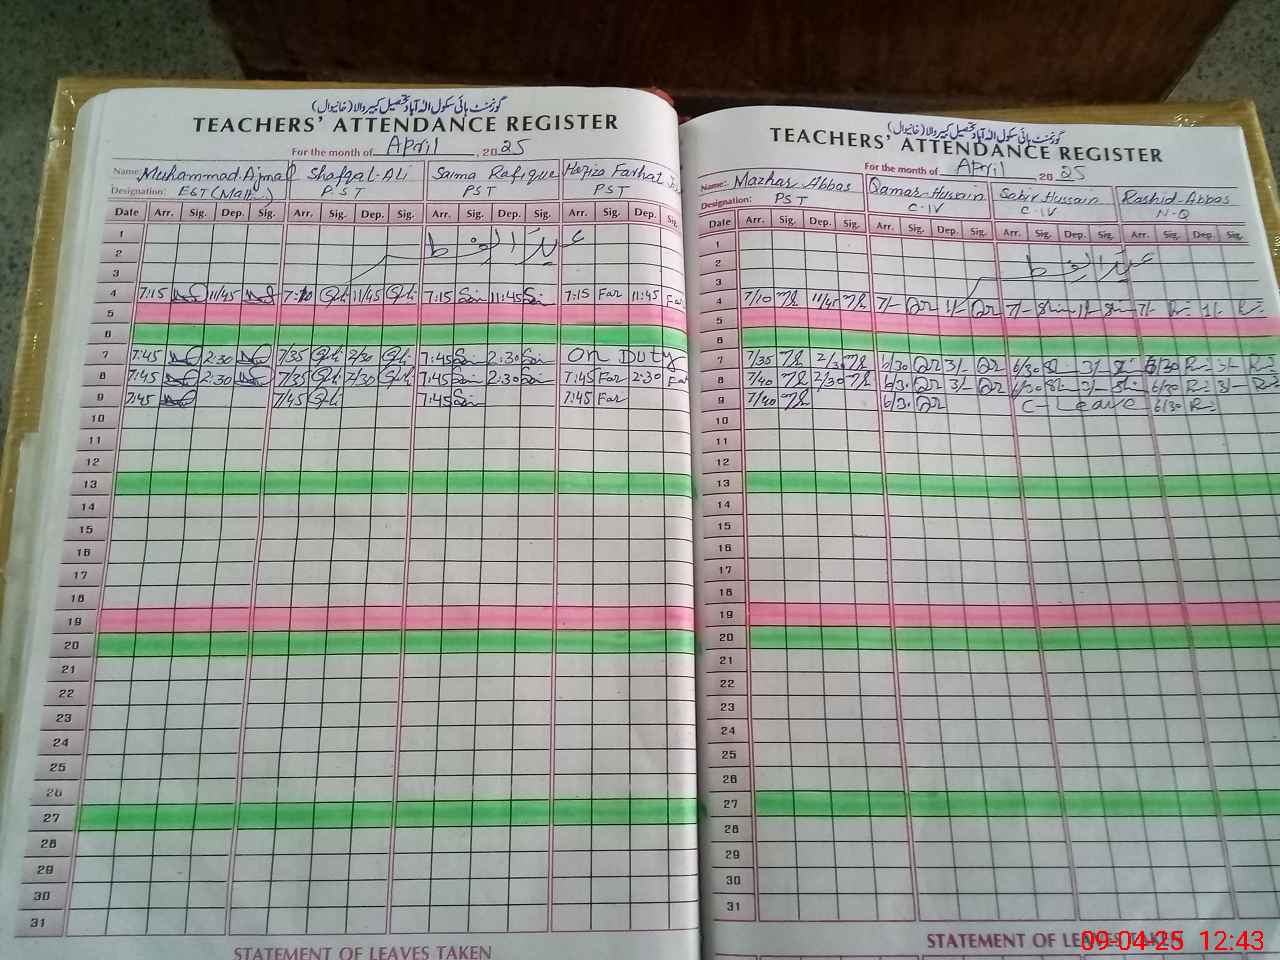 گورنمنٹ ہائی سکول الہ آباد تحصیل کبیروالا (خانیوال)
TEACHERS' ATTENDANCE REGISTER
For the month of April, 2025
Name: Muhammad Ajmal Shafqat Ali Saima Rafique Hafiza Farhat
Designation: EST (Math) PST PST PST
Date Arr. Sig. Dep. Sig. Arr. Sig. Dep. Sig. Arr. Sig. Dep. Sig. Arr. Sig. Dep. Sig.
1
عید الفطر
2
3
4 7:15 11/45 11/45 7:15 Sai 11:45 Sai 7:15 Far 11:45 Far
5
6
7 7:45 2:30 7/35 2/30 7:45 Sai 2:30 Sai On Duty
8 7:45 2:30 7/35 2/30 7:45 Sai 2:30 Sai 7:45 Far 2:30 Far
9 7:45 7/45 7:45 Sai 7:45 Far
10
11
12
13
14
15
16
17
18
19
20
21
22
23
24
25
26
27
28
29
30
31
STATEMENT OF LEAVES TAKEN
گورنمنٹ ہائی سکول الہ آباد تحصیل کبیروالا (خانیوال)
TEACHERS' ATTENDANCE REGISTER
For the month of April 2025
Name: Mazhar Abbas Qamar Hussain Sabir Hussain Rashid Abbas
Designation: PST C-IV C-IV N-Q
Date Arr. Sig. Dep. Sig. Arr. Sig. Dep. Sig. Arr. Sig. Dep. Sig. Arr. Sig. Dep. Sig.
1
عید الفطر
2
3
4 7/10 11/45 7/- 1/- 7/- 1/- 7/- 1/-
5
6
7 7/35 2/30 6/30 3/- 6/30 3/- 6/30 3/-
8 7/40 2/30 6/30 3/- 6/30 3/- 6/30 3/-
9 7/40 6/30 C-Leave 6/30
10
11
12
13
14
15
16
17
18
19
20
21
22
23
24
25
26
27
28
29
30
31
STATEMENT OF LEAVES TAKEN
09-04-25 12:43